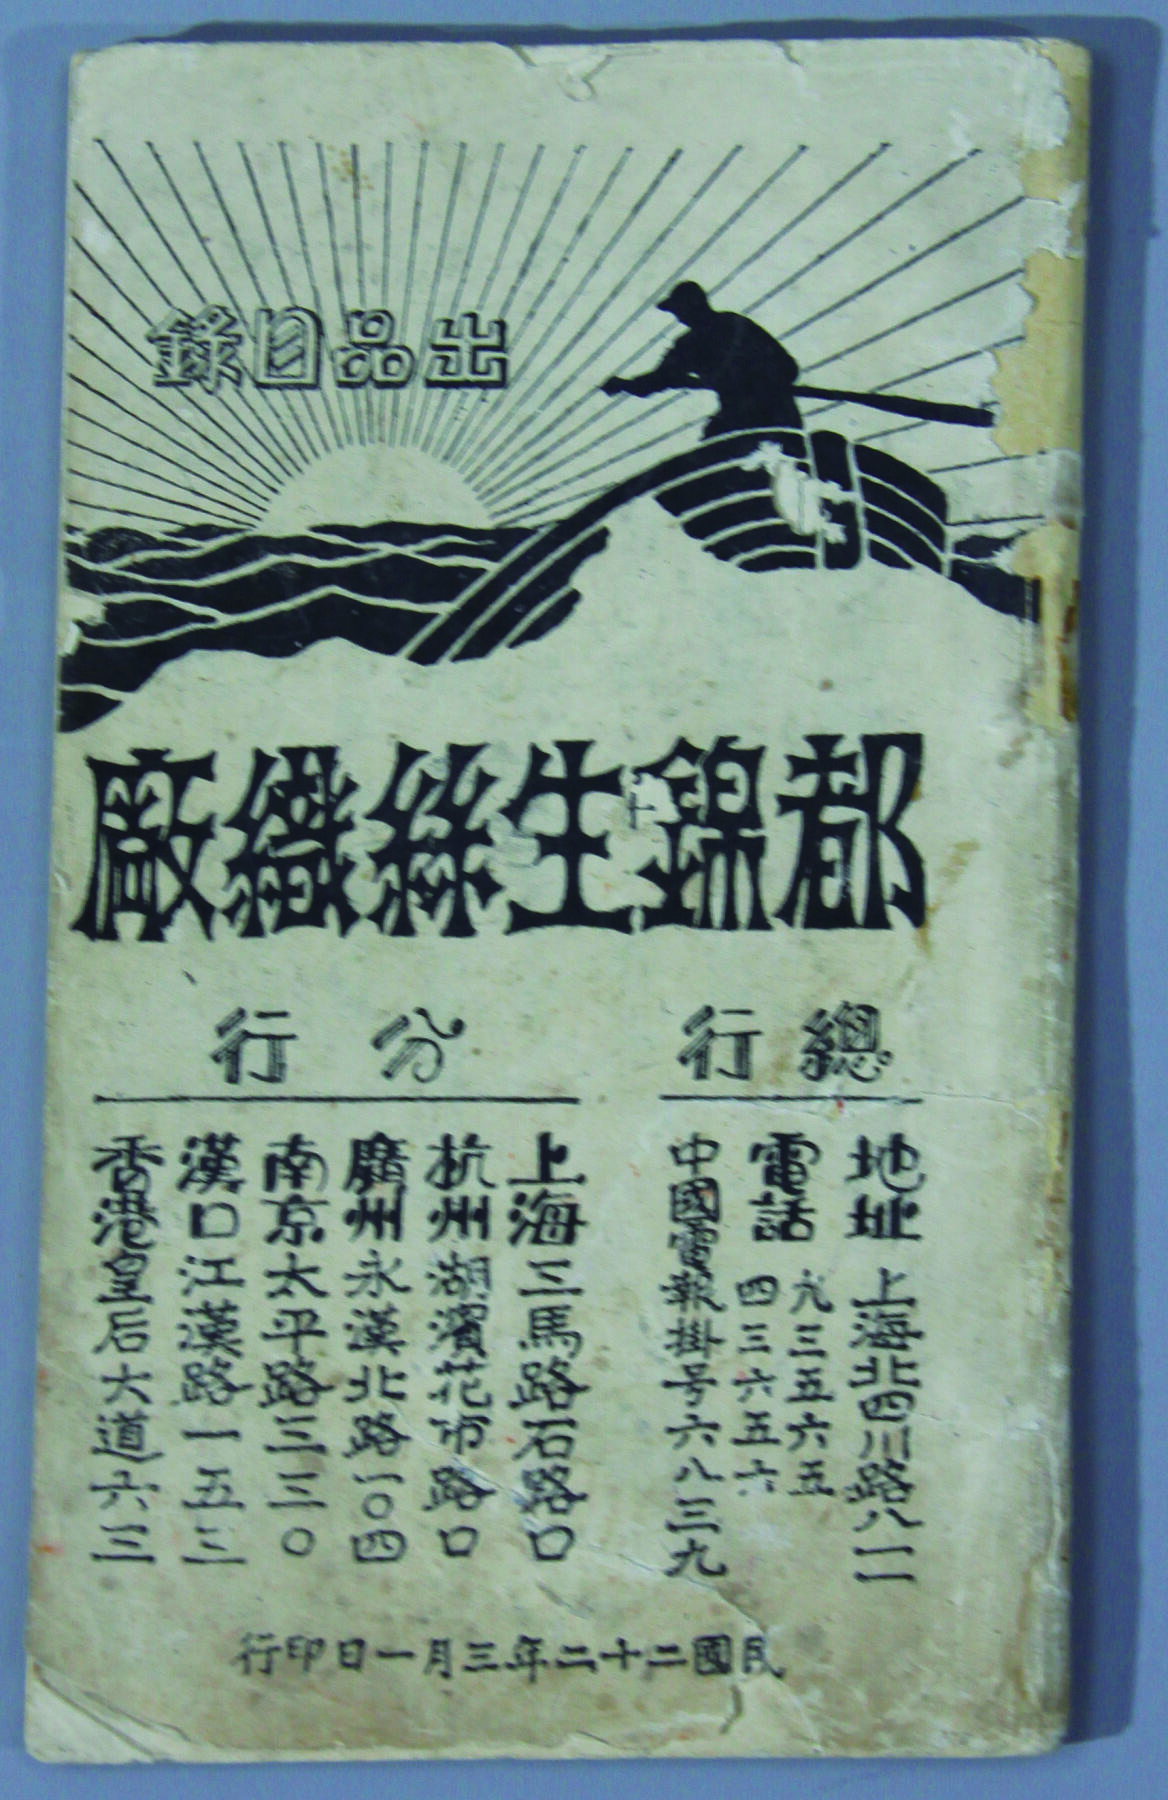 出品目錄
都錦生絲織厰
總行
地址 上海北四川路八一一
電話 九三五六五
四三六五六
中國電報掛号六八三九
分行
上海三馬路石路口
杭州湖濱花市路口
廣州永漢北路一〇四
南京太平路三三〇
漢口江漢路一五三
香港皇后大道六三
民國二十二年三月一日印行